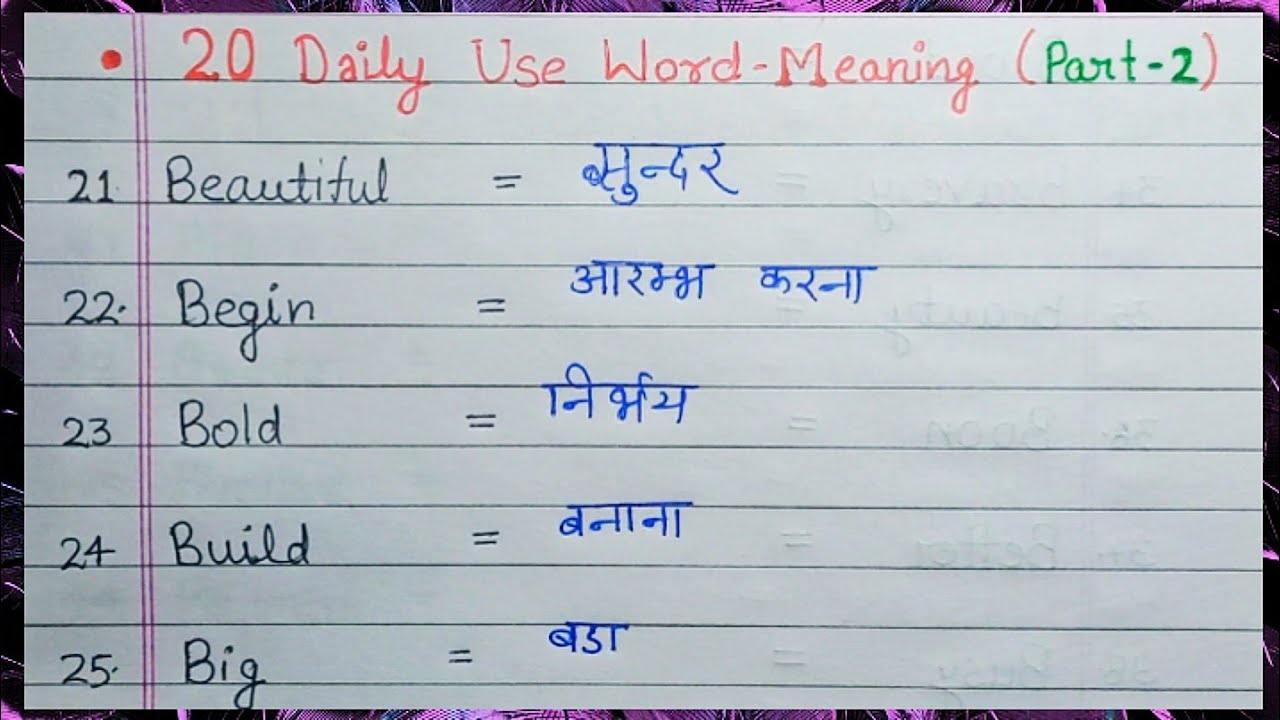 • 20 Daily Use Word-Meaning (Part-2)
21. Beautiful = सुन्दर
22. Begin = आरम्भ करना
23 Bold = निर्भय
24 Build = बनाना
25. Big = बडा